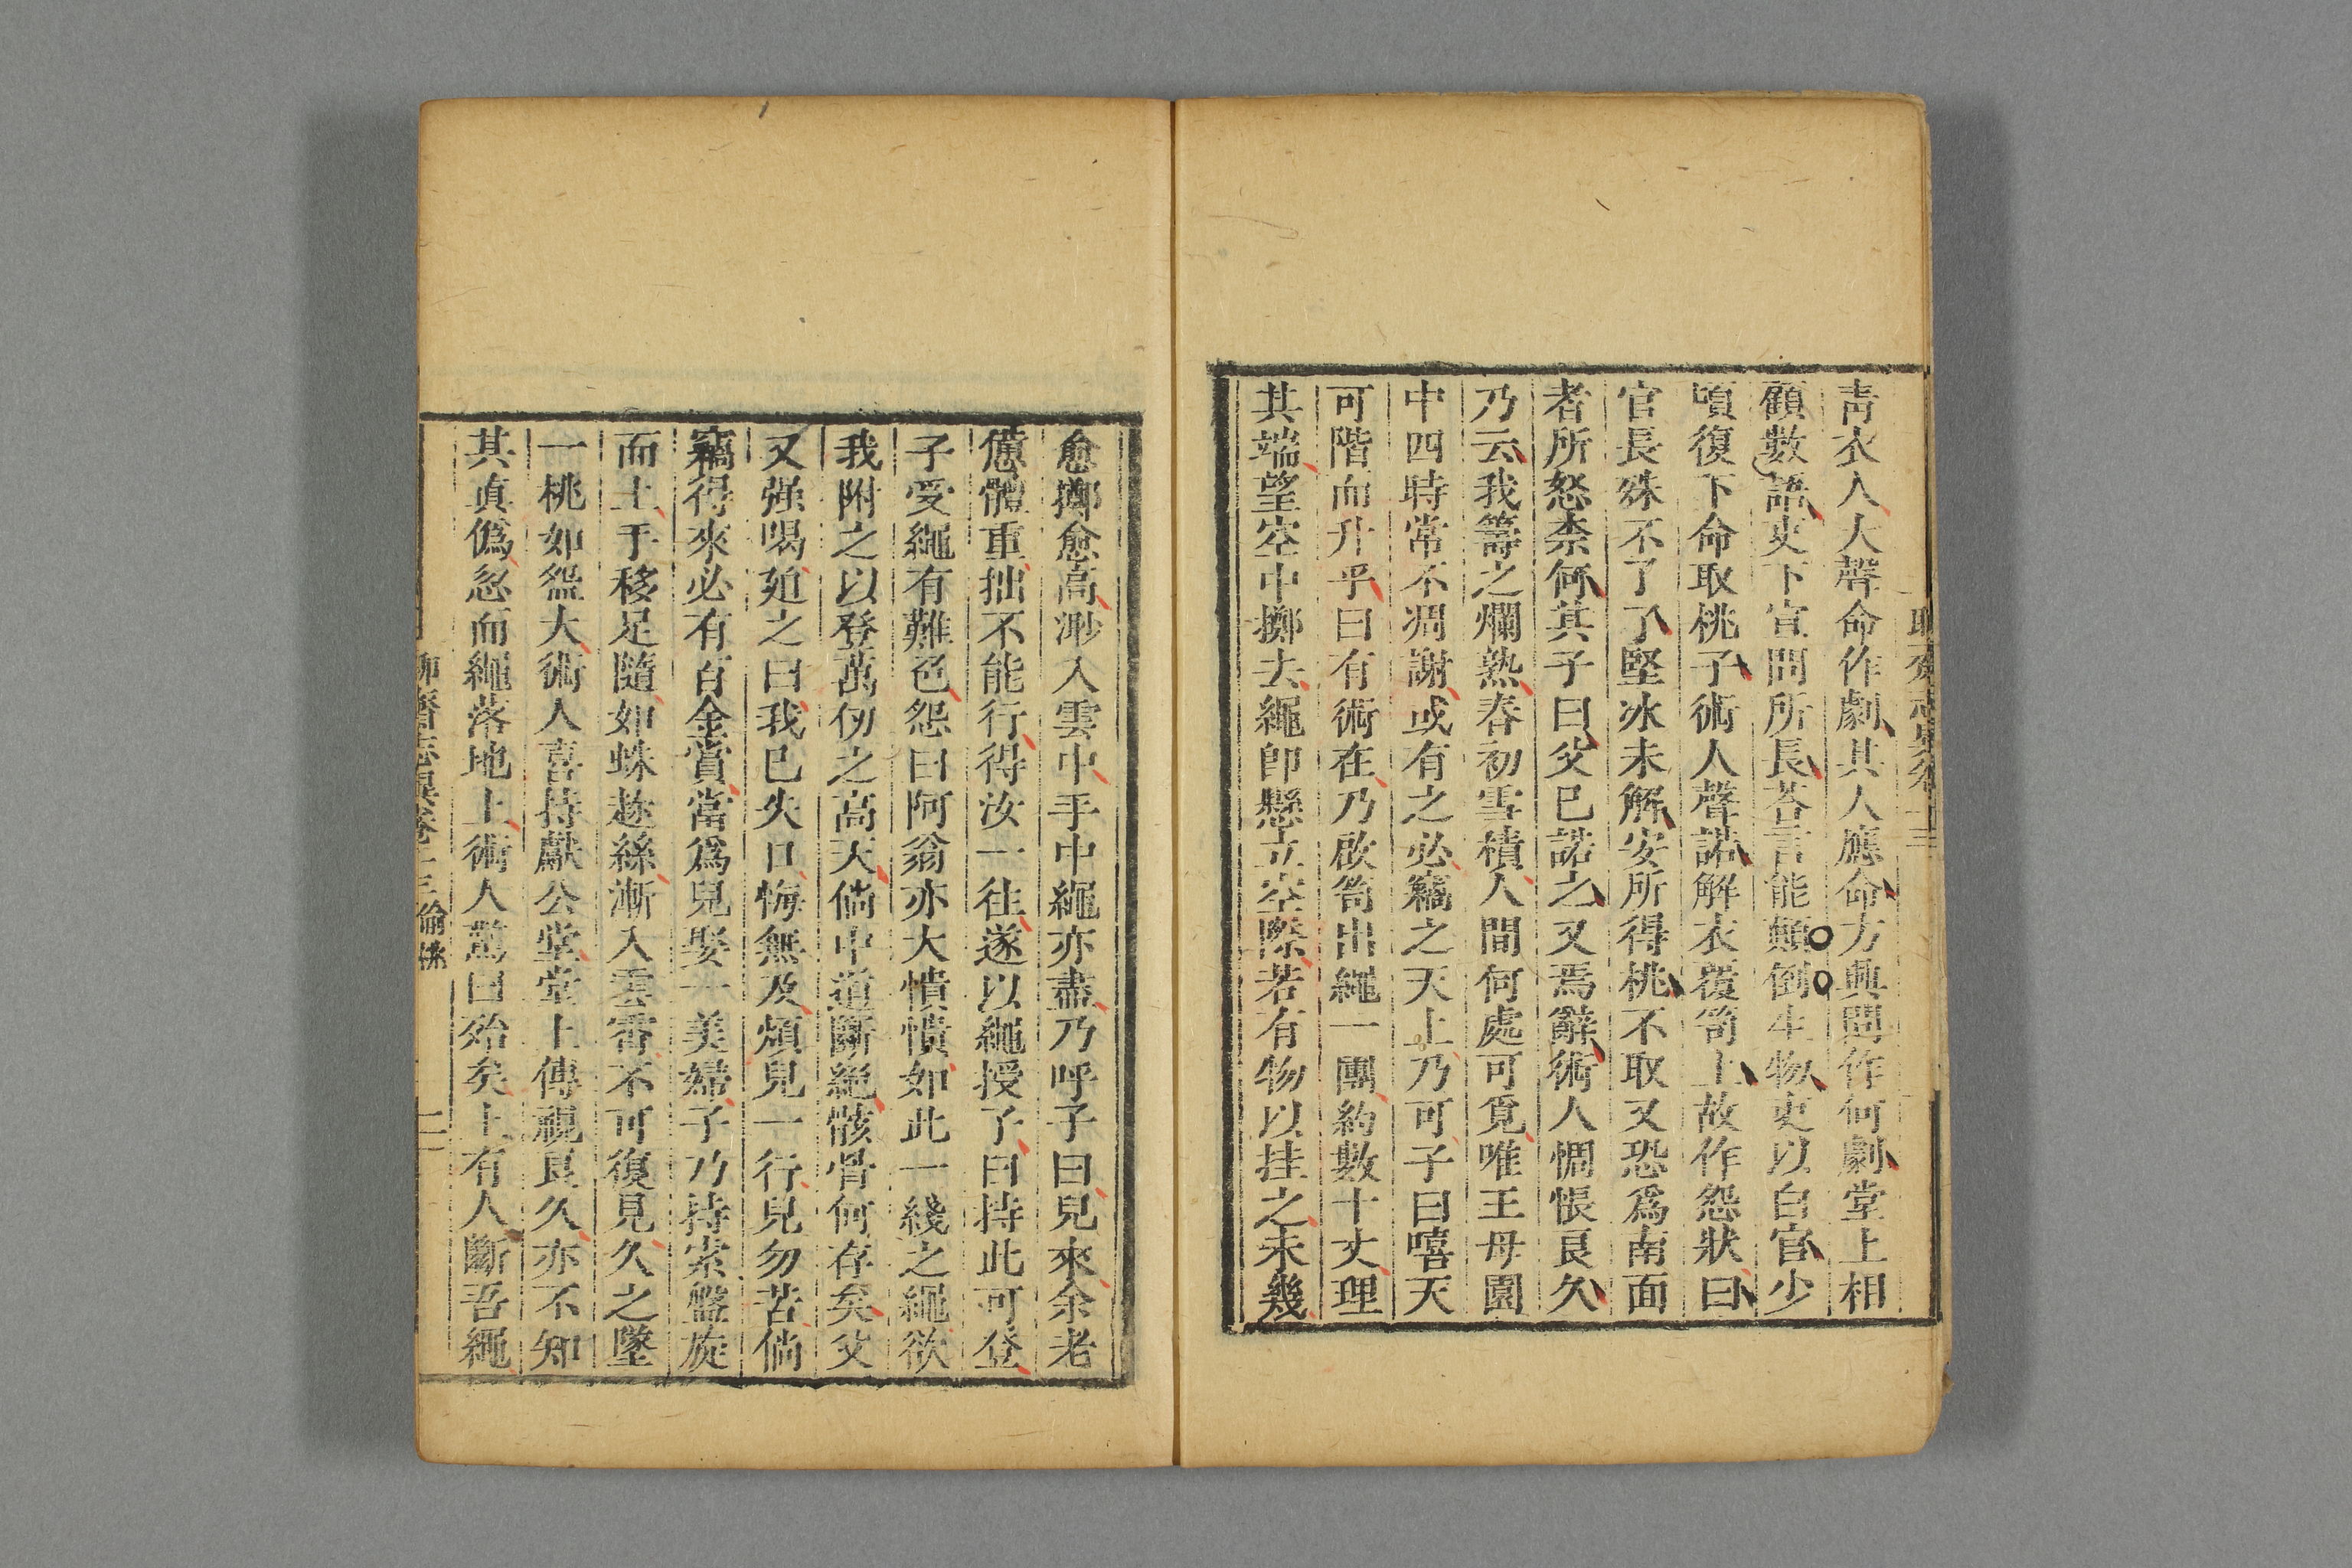 聊齋志異卷十三
青衣人大聲命作劇其人應命方興問作何劇堂上相
顧數語吏下宣問所長荅言能顛倒生物吏以白官少
頃復下命取桃子術人聲諾解衣覆笥上故作怨狀曰
官長殊不了了堅冰未解安所得桃不取又恐爲南面
者所怒柰何其子曰父已諾之又焉辭術人惆悵良久
乃云我籌之爛熟春初雪積人間何處可覓唯王母園
中四時常不凋謝或有之必竊之天上乃可子曰嘻天
可階而升乎曰有術在乃啟笥出繩一團約數十丈理
其端望空中擲去繩卽懸立空際若有物以挂之未幾
愈擲愈高渺入雲中手中繩亦盡乃呼子曰兒來余老
憊體重拙不能行得汝一往遂以繩授子曰持此可登
子受繩有難色怨曰阿翁亦大憒憒如此一綫之繩欲
我附之以登萬仞之高天倘中道斷絕骸骨何存矣父
又强喝廹之曰我已失口悔無及煩兒一行兒勿苦倘
竊得來必有百金賞當爲兒娶一美婦子乃持索盤旋
而上手移足隨如蛛趂絲漸入雲霄不可復見久之墜
一桃如盌大術人喜持獻公堂堂上傳視良久亦不知
其眞僞忽而繩落地上術人驚曰殆矣上有人斷吾繩
聊齋志異卷十三 偷桃 二